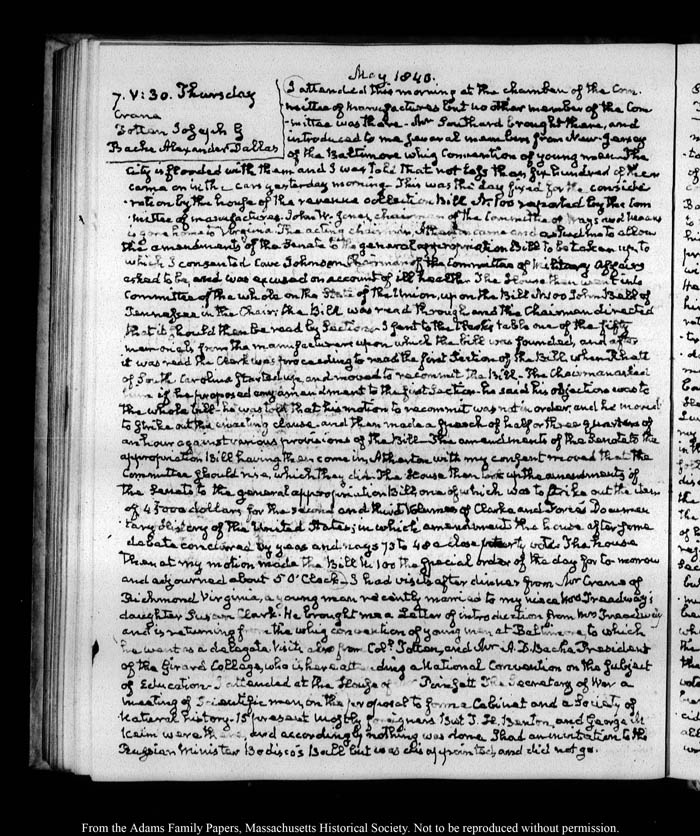 May 1840.
7. V: 30. Thursday
Crane
Totten Joseph G
Bache Alexander Dallas
I attended this morning at the chamber of the Com-
-mittee of Manufactures but no other member of the Com-
-mittee was there. Mr Southard brought there, and
introduced to me several members from New-Jersey
of the Baltimore whig Convention of young men. The
City is flooded with them and I was told that not less than six hundred of them
came on in the cars yesterday morning. This was the day fixed for the conside-
-ration by the house of the revenue collection Bill N. 100 reported by the Com-
-mittee of manufactures. John W. Jones, chairman of the Committee of Ways and Means
is gone home to Virginia. The acting chairman, Atherton came and asked me to allow
the amendments of the Senate to the general appropriation Bill to be taken up, to
which I consented Cave Johnson Chairman of the Committee of Military Affairs
asked to be, and was excused on account of ill health. The House then went into
Committee of the whole on the State of the Union, upon the Bill N. 100 John Bell of
Tennessee in the Chair; the Bill was read through and the Chairman directed
that it should then be read by Sections. I sent to the Clerk's table one of the fifty
memorials from the manufacturers upon which the bill was founded, and after
it was read the Clerk was proceeding to read the first Section of the Bill, when Rhett
of South Carolina started up, and moved to recommit the Bill. The Chairman asked
him if he proposed any amendment to the first Section. he said his objection was to
the whole bill. he was told that his motion to recommit was not in order, and he moved
to strike out the enacting clause. and then made a speech of half or three quarters of
an hour against various provisions of the Bill. The amendments of the Senate to the
appropriation Bill having then come in Atherton with my consent moved that the
Committee should rise, which they did. The House then took up the amendments of
the Senate to the general appropriation bill, one of which was to strike out the item
of dollars for the second and third Volumes of Clarke and Force's Documen-
tary History of the United States; in which amendment the house after some
debate concurred by yeas and nays 73 to 48 a close party vote. The house
then at my motion made the Bill N. 100 the special order of the day for to-morrow
and adjourned about 5 O'Clock. I had visits after dinner from Mr Crane of
Richmond Virginia, a young man recently married to my niece Mrs Treadway's
daughter Susan Clark. He brought me a Letter of introduction from Mrs Treadway
and is returning from the whig convention of young men at Baltimore, to which
he went as a delegate. Visits also from Col. Totten, and Mr A. D. Bache President
of the Girard College, who is here attending a National Convention on the subject
of Education. I attended at the House of Mr Poinsett The Secretary of War a
meeting of Scientific men, on the proposal to form a Cabinet and a Society of
Natural history. 15 present mostly foreigners But T. H. Benton, and George M
Keim were there, and accordingly nothing was done. I had an invitation to the
Russian Minister Bodisco's Ball but was disappointed, and did not go.
From the Adams Family Papers, Massachusetts Historical Society. Not to be reproduced without permission.